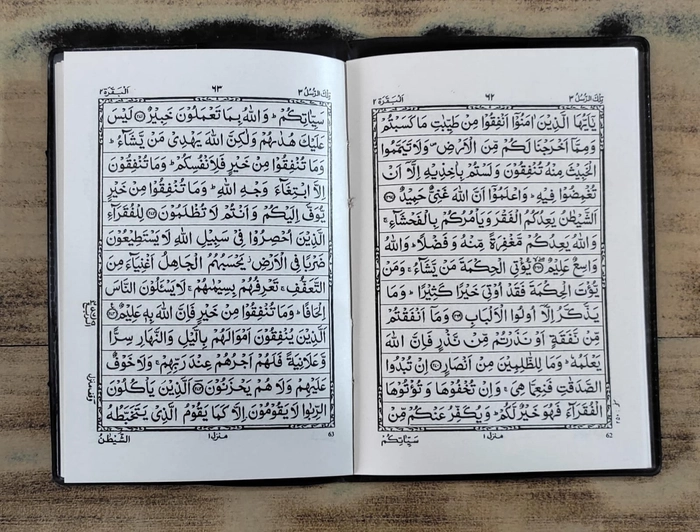 تِلْكَ الرُّسُلُ ٣
٦٢
اَلْبَقَرَة ٢
يٰۤاَيُّهَا الَّذِيْنَ اٰمَنُوْۤا اَنْفِقُوْا مِنْ طَيِّبٰتِ مَا كَسَبْتُمْ
وَمِمَّاۤ اَخْرَجْنَا لَكُمْ مِّنَ الْاَرْضِ۪ وَلَا تَيَمَّمُوا
الْخَبِيْثَ مِنْهُ تُنْفِقُوْنَ وَلَسْتُمْ بِاٰخِذِيْهِ اِلَّاۤ اَنْ
تُغْمِضُوْا فِيْهِ ؕ وَاعْلَمُوْۤا اَنَّ اللّٰهَ غَنِيٌّ حَمِيْدٌ ﴿٢٦٧﴾
اَلشَّيْطٰنُ يَعِدُكُمُ الْفَقْرَ وَيَاْمُرُكُمْ بِالْفَحْشَآءِ ۚ
وَاللّٰهُ يَعِدُكُمْ مَّغْفِرَةً مِّنْهُ وَفَضْلًا ؕ وَاللّٰهُ
وَاسِعٌ عَلِيْمٌ ﴿٢٦٨﴾ يُّؤْتِي الْحِكْمَةَ مَنْ يَّشَآءُ ۚ وَمَنْ
يُّؤْتَ الْحِكْمَةَ فَقَدْ اُوْتِيَ خَيْرًا كَثِيْرًا ؕ وَمَا
يَذَّكَّرُ اِلَّاۤ اُولُوا الْاَلْبَابِ ﴿٢٦٩﴾ وَمَاۤ اَنْفَقْتُمْ
مِّنْ نَّفَقَةٍ اَوْ نَذَرْتُمْ مِّنْ نَّذْرٍ فَاِنَّ اللّٰهَ
يَعْلَمُهٗ ؕ وَمَا لِلظّٰلِمِيْنَ مِنْ اَنْصَارٍ ﴿٢٧٠﴾ اِنْ تُبْدُوا
الصَّدَقٰتِ فَنِعِمَّا هِيَ ۚ وَاِنْ تُخْفُوْهَا وَتُؤْتُوْهَا
الْفُقَرَآءَ فَهُوَ خَيْرٌ لَّكُمْ ؕ وَيُكَفِّرُ عَنْكُمْ مِّنْ
سَيِّاٰتِكُمْ
منزل ١
62
اَلْبَقَرَة ٢
٦٣
تِلْكَ الرُّسُلُ ٣
سَيِّاٰتِكُمْ ؕ وَاللّٰهُ بِمَا تَعْمَلُوْنَ خَبِيْرٌ ﴿٢٧١﴾ لَيْسَ
عَلَيْكَ هُدٰىهُمْ وَلٰكِنَّ اللّٰهَ يَهْدِيْ مَنْ يَّشَآءُ ؕ
وَمَا تُنْفِقُوْا مِنْ خَيْرٍ فَلِاَنْفُسِكُمْ ؕ وَمَا تُنْفِقُوْنَ
اِلَّا ابْتِغَآءَ وَجْهِ اللّٰهِ ؕ وَمَا تُنْفِقُوْا مِنْ خَيْرٍ
يُّوَفَّ اِلَيْكُمْ وَاَنْتُمْ لَا تُظْلَمُوْنَ ﴿٢٧٢﴾ لِلْفُقَرَآءِ
الَّذِيْنَ اُحْصِرُوْا فِيْ سَبِيْلِ اللّٰهِ لَا يَسْتَطِيْعُوْنَ
ضَرْبًا فِي الْاَرْضِ ؗ يَحْسَبُهُمُ الْجَاهِلُ اَغْنِيَآءَ مِنَ
التَّعَفُّفِ ۚ تَعْرِفُهُمْ بِسِيْمٰهُمْ ۚ لَا يَسْـَٔلُوْنَ النَّاسَ
اِلْحَافًا ؕ وَمَا تُنْفِقُوْا مِنْ خَيْرٍ فَاِنَّ اللّٰهَ بِهٖ عَلِيْمٌ ﴿٢٧٣﴾
اَلَّذِيْنَ يُنْفِقُوْنَ اَمْوَالَهُمْ بِالَّيْلِ وَالنَّهَارِ سِرًّا
وَّعَلَانِيَةً فَلَهُمْ اَجْرُهُمْ عِنْدَ رَبِّهِمْ ۚ وَلَا خَوْفٌ
عَلَيْهِمْ وَلَا هُمْ يَحْزَنُوْنَ ﴿٢٧٤﴾ اَلَّذِيْنَ يَاْكُلُوْنَ
الرِّبٰوا لَا يَقُوْمُوْنَ اِلَّا كَمَا يَقُوْمُ الَّذِيْ يَتَخَبَّطُهُ
الشَّيْطٰنُ
منزل ١
63